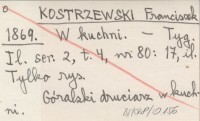 o KOSTRZEWSKI Franciszek
1869. W kuchni. — Tyg.
Il. ser. 2, t. 4, nr 80: 17, il.
Tylko rys.
Góralski druciarz w kuch-
ni.